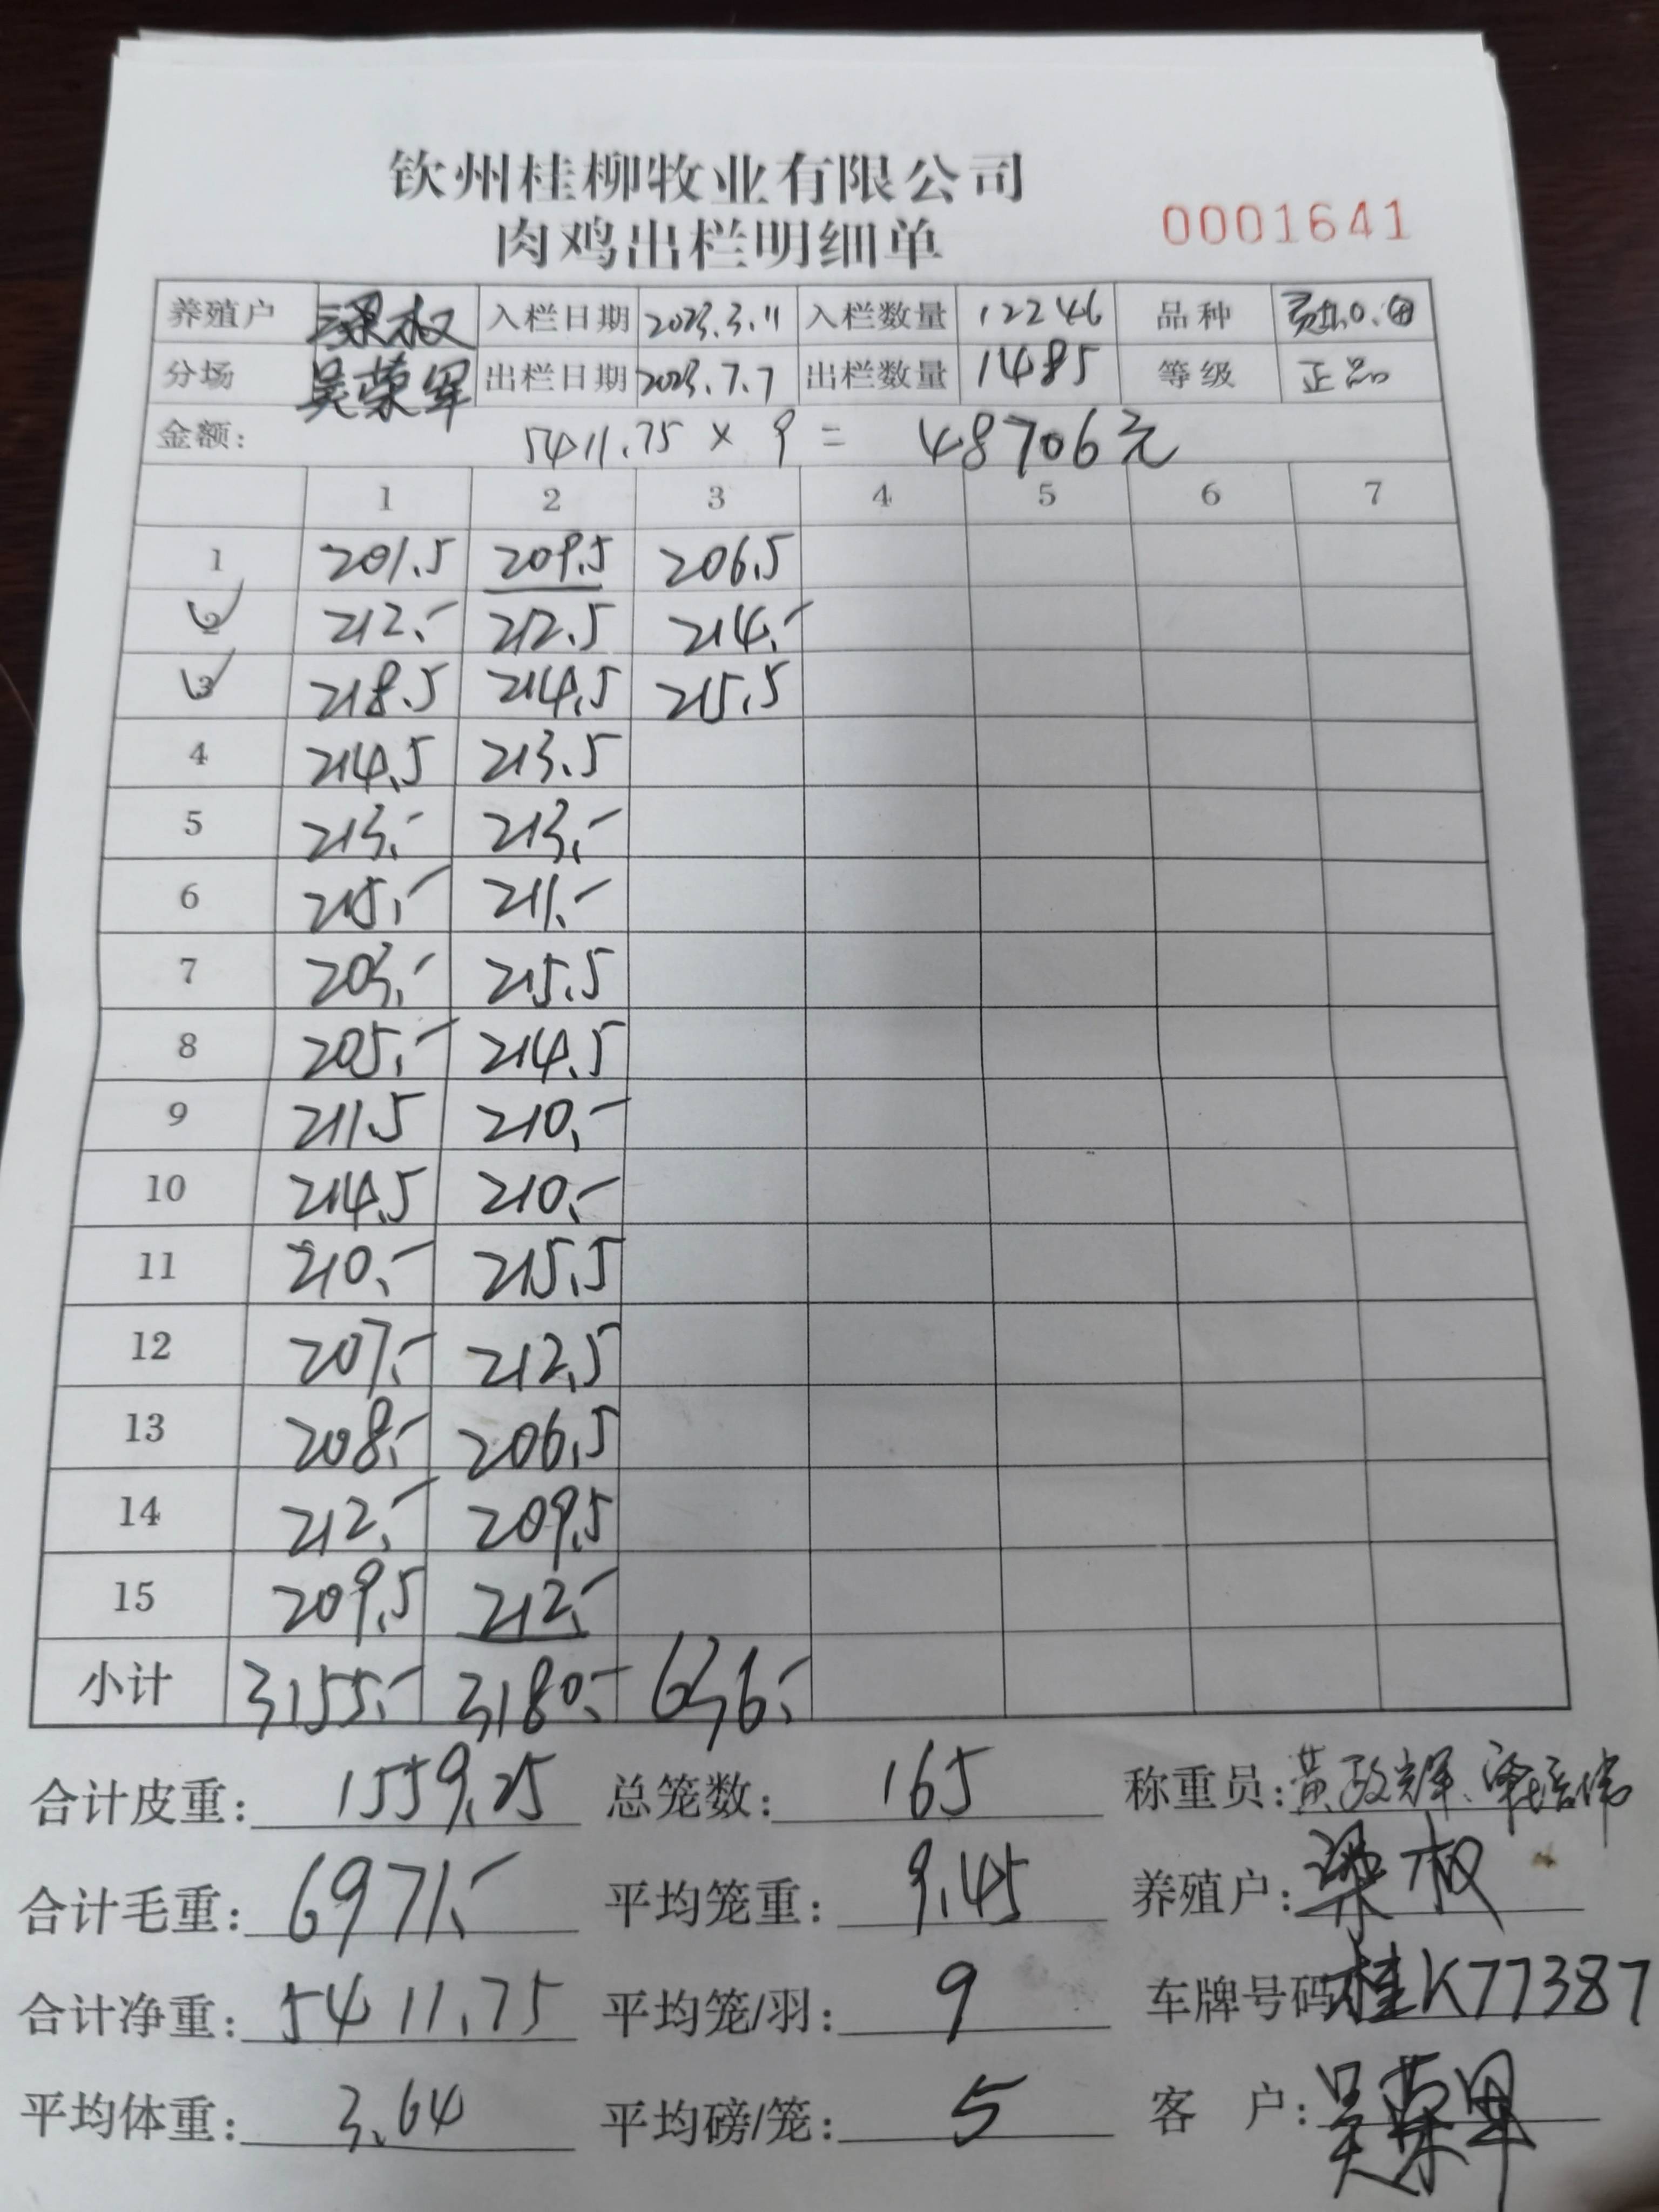 钦州桂柳牧业有限公司
肉鸡出栏明细单
0001641
养殖户 梁权 入栏日期 2023.3.11 入栏数量 12246 品种
分场 吴荣军 出栏日期 2023.7.7 出栏数量 1485 等级 正品
金额: 5411.75 × 9 = 48706元
1 2 3 4 5 6 7
1 201.5 209.5 206.5
2 212.- 212.5 214.-
3 218.5 214.5 215.5
4 214.5 213.5
5 213.- 213.-
6 215.- 211.-
7 203.- 215.5
8 205.- 214.5
9 211.5 210.-
10 214.5 210.-
11 210.- 215.5
12 207.- 212.5
13 208.- 206.5
14 212.- 209.5
15 209.5 212.-
小计 3155.- 3180.- 636.-
合计皮重: 1559.25 总笼数: 165 称重员: 黄政辉、
合计毛重: 6971.- 平均笼重: 9.45 养殖户: 梁权
合计净重: 5411.75 平均笼/羽: 9 车牌号码 桂K77387
平均体重: 3.64 平均磅/笼: 5 客 户: 吴荣军